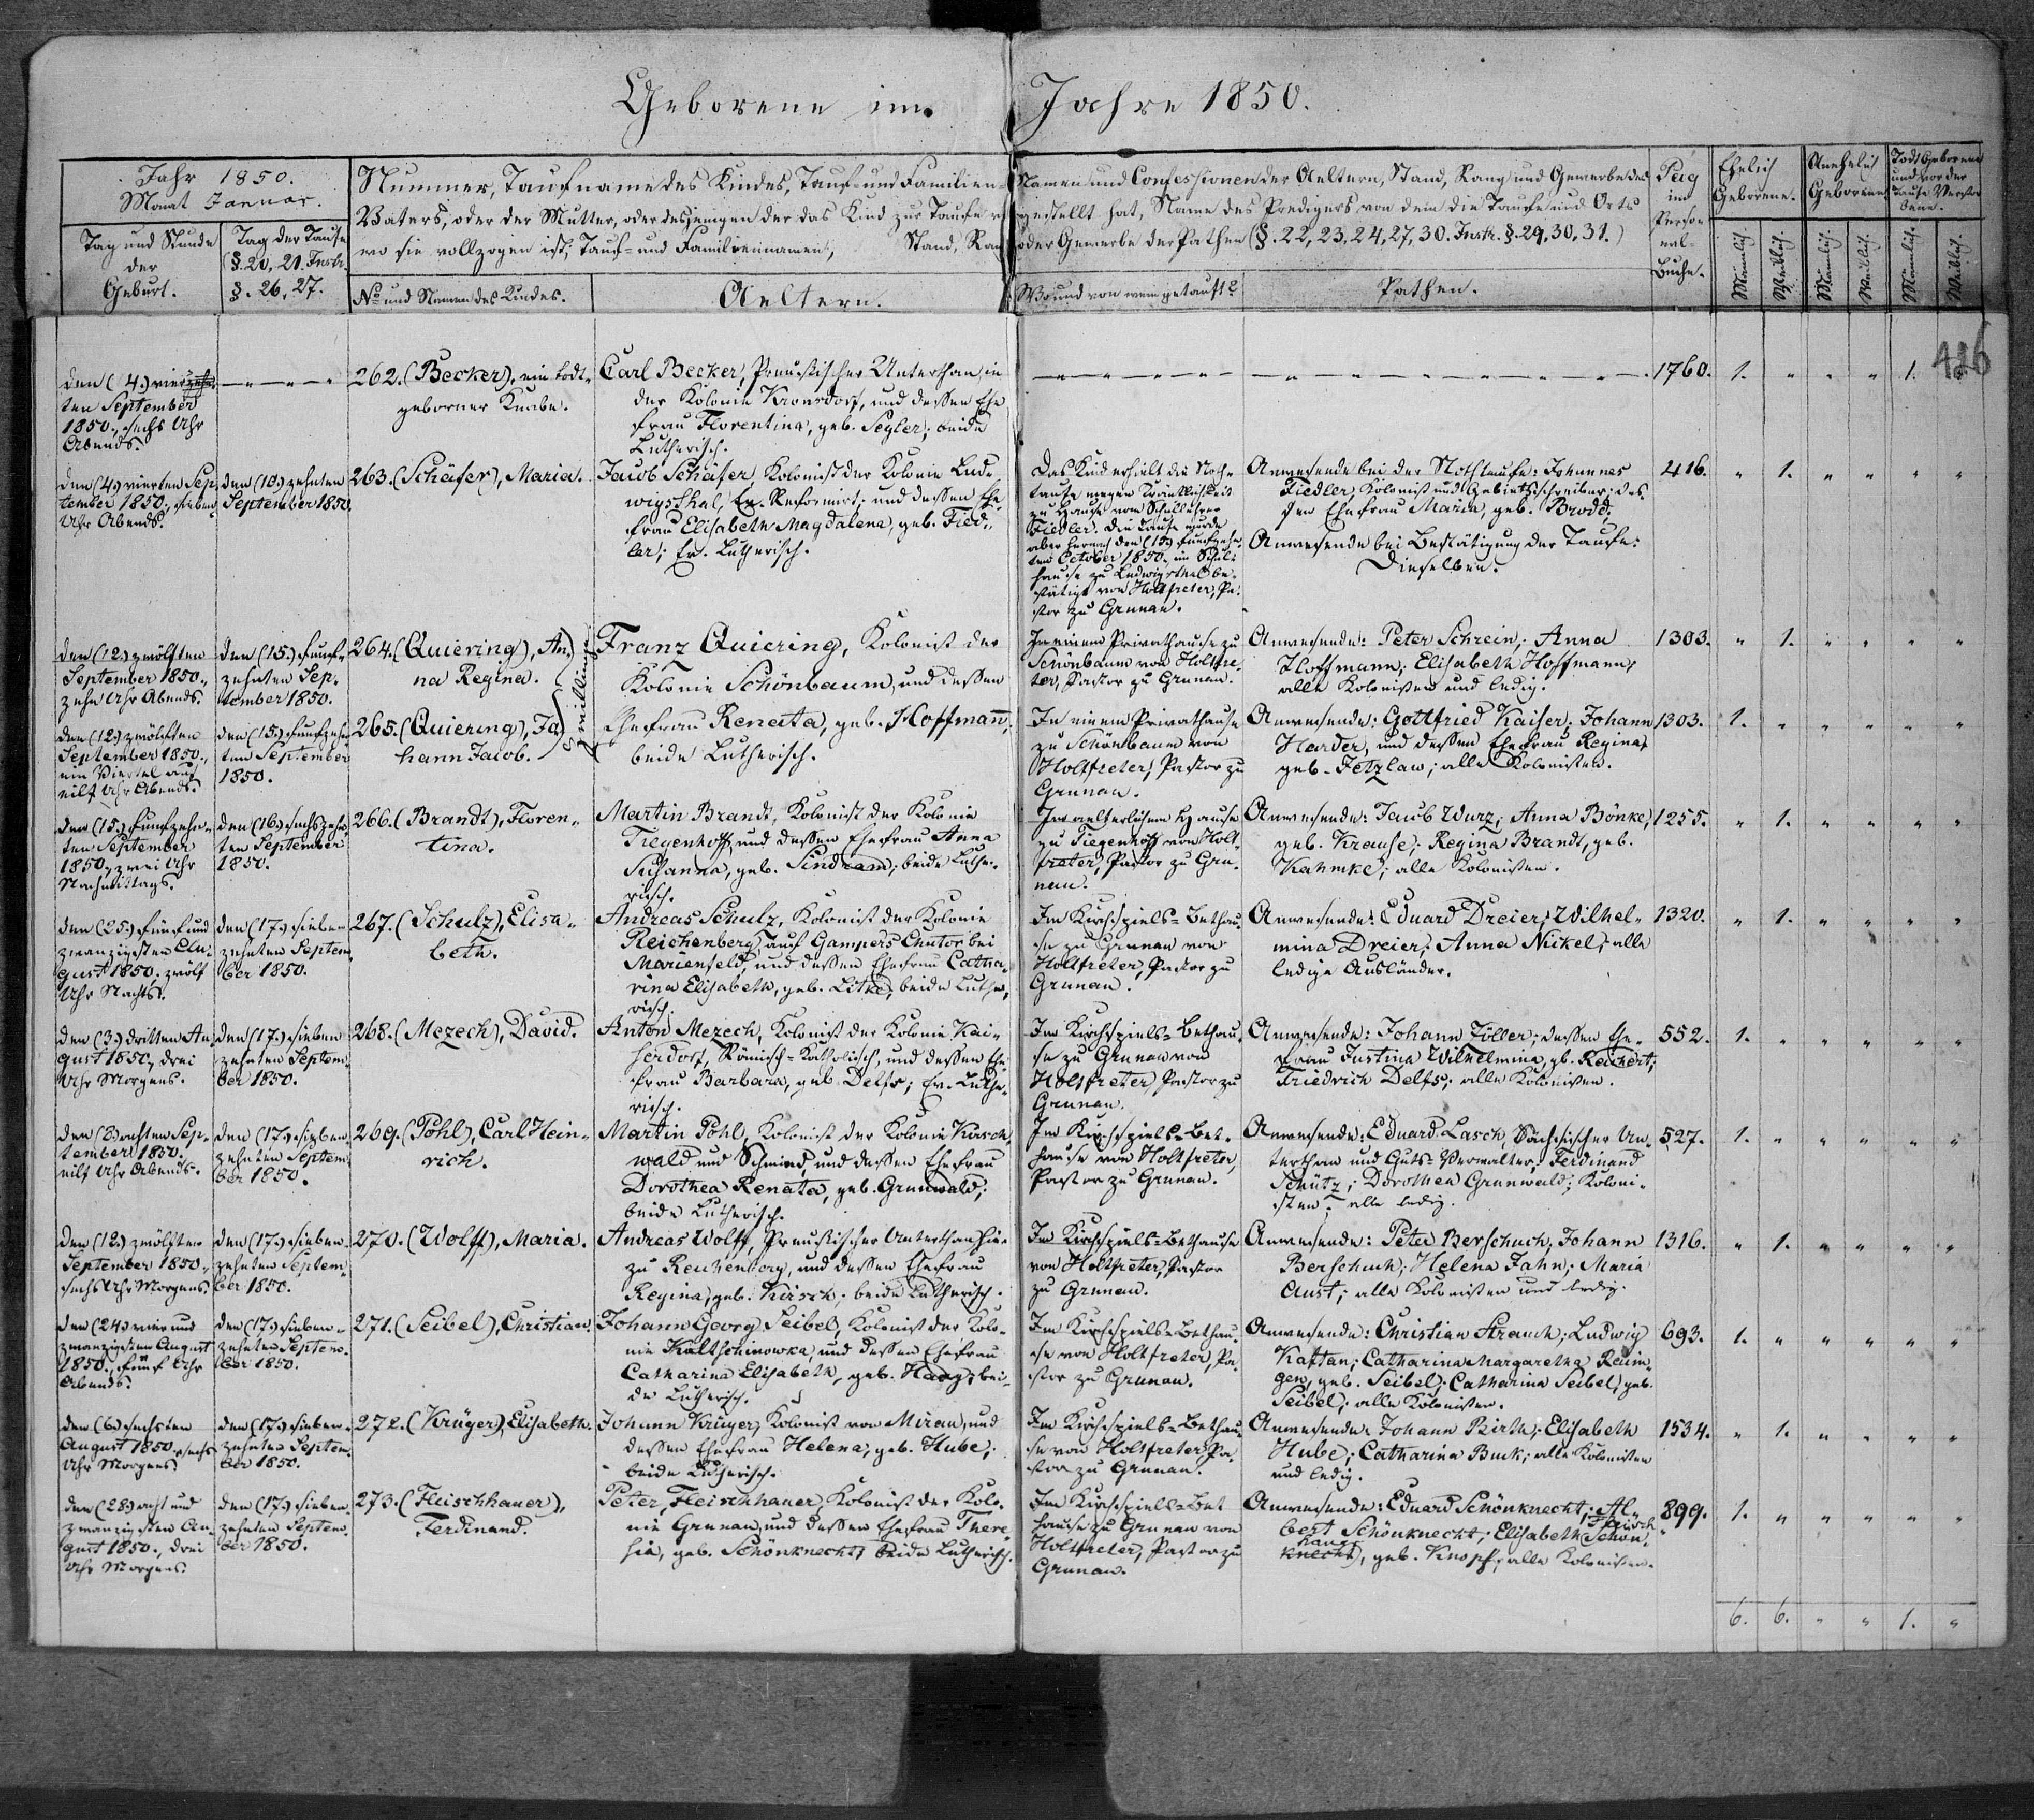 Geborene im Jahre 1850.
Jahr 1850.
Monat Januar.
Tag und Stunde
der
Geburt.
Tag der Taufe
(§. 20, 21. Instr.
§. 26, 27.
Nummer, Taufname des Kindes, Tauf- und Familien-
Vaters, oder der Mutter, oder desjenigen der das Kind zur Taufe
wo sie vollzogen ist, Tauf- und Familiennamen, Stand, Rang
No und Namen des Kindes.
Aeltern.
Namen und Confessionen der Aeltern, Stand, Rang und Gewerbe des
gestellt hat, Name des Predigers, von dem die Taufe und Orts
oder Gewerbe der Pathen (§. 22, 23, 24, 27, 30. Instr. §. 29, 30, 31.)
Wo und von wem getauft?
Pathen.
Pag
im
Perso-
nal-
Buche.
Ehelich
Geborene.
Unehelich
Geborene.
Todt Geborene
und vor der
Taufe Verstor-
bene.
Männlich.
Weiblich.
Männlich.
Weiblich.
Männlich.
Weiblich.
416
den (4.) vierzehn-
ten September
1850., sechs Uhr
Abends.
262. (Becker), ein todt-
geborner Knabe.
Carl Becker, Preußischer Unterthan, in
der Kolonie Kronsdorf, und dessen Ehe-
frau Florentina, geb. Segler; beide
Lutherisch.
1760. 1. " " " 1. "
den (4.) vierten Sep-
tember 1850., sieben
Uhr Abends.
den (10.) zehnten
September 1850.
263. (Schäfer), Maria.
Jacob Schäfer, Kolonist der Kolonie Lud-
wigsthal, Ev. Reformirt; und dessen Ehe-
frau Elisabeth Magdalena, geb. Fied-
ler; Ev. Lutherisch.
Das Kind erhielt die Noth-
taufe wegen Kränklichkeit
zu Hause vom Schullehrer
Fiedler. Die Taufe wurde
aber hernach den (15.) funfzehn-
ten October 1850. im Schul-
hause zu Ludwigsthal be-
stätigt von Holtfreter, Pa-
stor zu Grunau.
Anwesende bei der Nothtaufe: Johannes
Fiedler, Kolonist und Gebietsschreiber; des-
sen Ehefrau Maria, geb. Brodt;
Anwesende bei Bestätigung der Taufe:
Dieselben.
416. " 1. " " " "
den (12.) zwölften
September 1850.,
zehn Uhr Abends.
den (15.) funf-
zehnten Sep-
tember 1850.
264. (Quiering), An-
na Regina.
Zwillinge
Franz Quiering, Kolonist der
Kolonie Schönbaum, und dessen
Ehefrau Renata, geb. Hoffmann;
beide Lutherisch.
In einem Privathause zu
Schönbaum von Holtfre-
ter, Pastor zu Grunau.
Anwesende: Peter Schrein; Anna
Hoffmann; Elisabeth Hoffmann;
alle Kolonisten und ledig.
1303. " 1. " " " "
den (12.) zwölften
September 1850.,
ein Viertel auf
eilf Uhr Abends.
den (15.) funfzehn-
ten September
1850.
265. (Quiering), Jo-
hann Jacob.
In einem Privathause
zu Schönbaum von
Holtfreter, Pastor zu
Grunau.
Anwesende: Gottfried Kaiser; Johann
Harder, und dessen Ehefrau Regina,
geb. Fetzlaw; alle Kolonisten.
1303. 1. " " " " "
den (15.) funfzehn-
ten September
1850., zwei Uhr
Nachmittags.
den (16.) sechszehn-
ten September
1850.
266. (Brandt), Floren-
tina.
Martin Brandt, Kolonist der Kolonie
Tiegenhoff, und dessen Ehefrau Anna
Susanna, geb. Sindram; beide Luthe-
risch.
Im aelterlichen Hause
zu Tiegenhoff von Holt-
freter, Pastor zu Gru-
nau.
Anwesende: Jacob Wurz; Anna Bönke,
geb. Krause; Regina Brandt, geb.
Kahmke; alle Kolonisten.
1255. " 1. " " " "
den (25.) fünf und
zwanzigsten Au-
gust 1850., zwölf
Uhr Nachts.
den (17.) sieben-
zehnten Septem-
ber 1850.
267. (Schulz), Elisa-
beth.
Andreas Schulz, Kolonist der Kolonie
Reichenberg, auf Gampers Chutor bei
Marienfeld, und dessen Ehefrau Catha-
rina Elisabeth, geb. Litke; beide Luthe-
risch.
Im Kirchspiels-Bethau-
se zu Grunau von
Holtfreter, Pastor zu
Grunau.
Anwesende: Eduard Dreier; Wilhel-
mina Dreier; Anna Nickel; alle
ledige Ausländer.
1320. " 1. " " " "
den (3.) dritten Au-
gust 1850., drei
Uhr Morgens.
den (17.) sieben-
zehnten Septem-
ber 1850.
268. (Mezech), David.
Anton Mezech, Kolonist der Kolonie Kai-
serdorf, Römisch-Katholisch, und dessen Ehe-
frau Barbara, geb. Delfs; Ev. Luthe-
risch.
Im Kirchspiels-Bethau-
se zu Grunau von
Holtfreter, Pastor zu
Grunau.
Anwesende: Johann Zöller; dessen Ehe-
frau Justina Wilhelmina, geb. Reichert;
Friedrich Delfs; alle Kolonisten.
552. 1. " " " " "
den (8.) achten Sep-
tember 1850.
eilf Uhr Abends.
den (17.) sieben-
zehnten Septem-
ber 1850.
269. (Pohl), Carl Hein-
rich.
Martin Pohl, Kolonist der Kolonie Kirsch-
wald und Schmied, und dessen Ehefrau
Dorothea Renata, geb. Grunwald;
beide Lutherisch.
Im Kirchspiels-Bet-
hause von Holtfreter,
Pastor zu Grunau.
Anwesende: Eduard Lasch, Sächsischer Un-
terthan und Guts-Verwalter; Ferdinand
Schütz; Dorothea Grunwald; Koloni-
sten; alle ledig.
527. 1. " " " " "
den (12.) zwölften
September 1850.,
sechs Uhr Morgens.
den (17.) sieben-
zehnten Septem-
ber 1850.
270. (Wolff), Maria.
Andreas Wolff, Preußischer Unterthan hie-
zu Reuhenborg, und dessen Ehefrau
Regina, geb. Kirsch; beide Lutherisch.
Im Kirchspiels-Bethause
von Holtfreter, Pastor
zu Grunau.
Anwesende: Peter Berschuch; Johann
Berschuch; Helena Jahn; Maria
Aust; alle Kolonisten und ledig.
1316. " 1. " " " "
den (24.) vier und
zwanzigsten August
1850., fünf Uhr
Abends.
den (17.) sieben-
zehnten Septem-
ber 1850.
271. (Seibel), Christian.
Johann Georg Seibel, Kolonist der Kolo-
nie Kaltschinowka, und dessen Ehefrau
Catharina Elisabeth, geb. Haag; bei-
de Lutherisch.
Im Kirchspiels-Bethau-
se von Holtfreter, Pa-
stor zu Grunau.
Anwesende: Christian Strauch; Ludwig
Kaftan; Catharina Margaretha Reim-
gen, geb. Seibel; Catharina Seibel, geb.
Seibel; alle Kolonisten.
693. 1. " " " " "
den (6.) sechsten
August 1850., sechs
Uhr Morgens.
den (17.) sieben-
zehnten Septem-
ber 1850.
272. (Krüger), Elisabeth.
Johann Krüger, Kolonist von Mirau, und
dessen Ehefrau Helena, geb. Hube;
beide Lutherisch.
Im Kirchspiels-Bethau-
se von Holtfreter, Pa-
stor zu Grunau.
Anwesende: Johann Birth; Elisabeth
Hube; Catharina Buck; alle Kolonisten
und ledig.
1534. " 1. " " " "
den (28.) acht und
zwanzigsten Au-
gust 1850., drei
Uhr Morgens.
den (17.) sieben-
zehnten Septem-
ber 1850.
273. (Fleischhauer),
Ferdinand.
Peter Fleischhauer, Kolonist der Kolo-
nie Grunau, und dessen Ehefrau There-
sia, geb. Schönknecht; beide Lutherisch.
Im Kirchspiels-Bet-
hause zu Grunau von
Holtfreter, Pastor zu
Grunau.
Anwesende: Eduard Schönknecht; Al-
bert Schönknecht; Elisabeth Schön-
knecht, geb. Knopf; alle Kolonisten.
899. 1. " " " " "
6. 6. " " 1. "